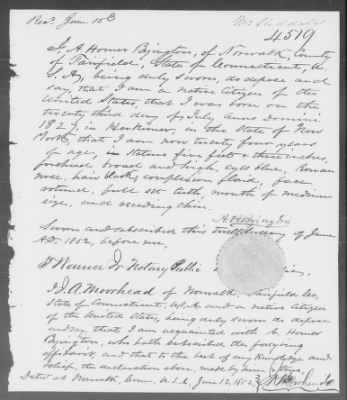 Recd. June 15
4519
I, A. Homer Byington, of Norwalk, County
of Fairfield, State of Connecticut, U.
S. A., being duly sworn, do depose and
say, that I am a native Citizen of the
United States, that I was born on the
twenty third day of July Anno Domini
1827, in Herkimer, in the State of New
York, that I am now twenty four years
of age, in stature five feet & three inches,
forehead broad and high, eyes blue, Roman
nose, hair black, complexion fluid, face
rotund, full set teeth, mouth of medium
size, and receding chin.
A. H. Byington
Sworn and subscribed this day of June
A.D. 1852, before me,
Notary Public
I, A. Moorhead of Norwalk, Fairfield Co,
State of Connecticut, U.S.A. and a native Citizen
of the United States, being duly sworn do depose
and say, that I am acquainted with A. Homer
Byington, who hath subscribed the foregoing
affidavit, and that to the best of my knowledge and
belief, the declaration above, made by him is true.
Dated at Norwalk, Conn. U.S.A. June 12, 1852